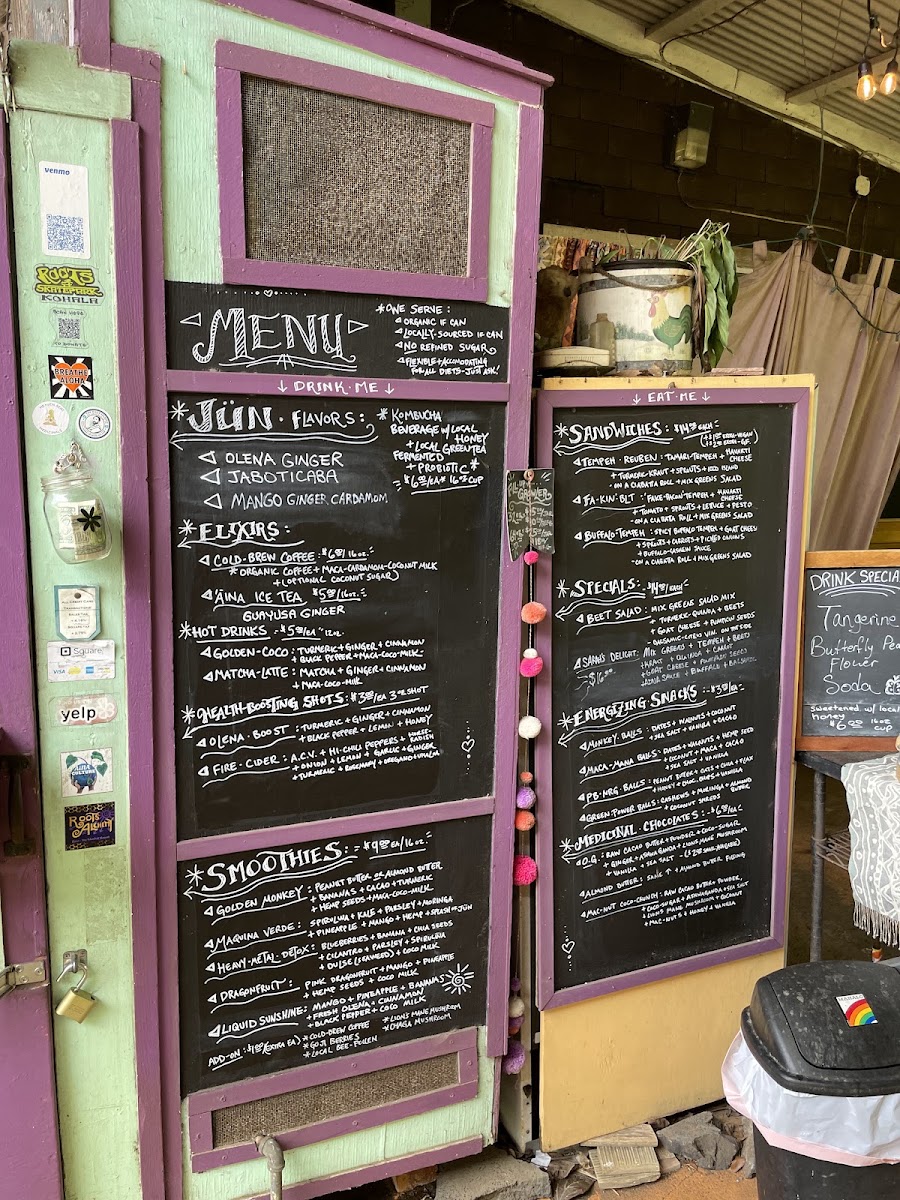 venmo
ROOTS
SKATEPARK
KOHALA
BREATHE
ALOHA
Square
VISA
yelp
AINA
CULTURE
ROOTS
MENU
*WE SERVE:
ORGANIC IF CAN
LOCALLY-SOURCED IF CAN
NO REFINED SUGAR
FLEXIBLE + ACCOMODATING
FOR ALL DIETS - JUST ASK!
↓ DRINK·ME ↓
*JÜN·FLAVORS:
OLENA GINGER
JABOTICABA
MANGO GINGER CARDAMOM
*KOMBUCHA
BEVERAGE W/ LOCAL
HONEY
+ LOCAL GREEN TEA
FERMENTED
+ PROBIOTIC*
$6.00/EA* 16oz CUP
*ELIXIRS:
COLD-BREW COFFEE: $6.00/16oz.
*ORGANIC COFFEE + MACA-CARDAMOM-COCONUT MILK
+ (OPTIONAL COCONUT SUGAR)
'ĀINA ICE TEA $5.00/16oz.
GUAYUSA GINGER
*HOT DRINKS - $5.00/EA 12oz.
GOLDEN-COCO: TURMERIC + GINGER + CINNAMON
+ BLACK PEPPER + MACA-COCO-MILK
MATCHA-LATTE: MATCHA + GINGER + CINNAMON
+ MACA-COCO-MILK
*HEALTH-BOOSTING SHOTS: $3.00/EA 3oz SHOT
OLENA-BOOST: TURMERIC + GINGER + CINNAMON
+ BLACK PEPPER + LEMON + HONEY
FIRE-CIDER: A.C.V. + HI-CHILI PEPPERS + HORSE-
RADISH
+ ONION + LEMON + GARLIC + GINGER
+ TURMERIC + ROSEMARY + OREGANO +
*SMOOTHIES: - $9.00/EA/16oz
GOLDEN MONKEY: PEANUT BUTTER OR ALMOND BUTTER
+ BANANAS + CACAO + TURMERIC
+ HEMP SEEDS + MACA-COCO-MILK
MAQUINA VERDE: SPIRULINA + KALE + PARSLEY + MORINGA
+ PINEAPPLE + MANGO + HEMP + SPLASH OF JÜN
HEAVY-METAL-DETOX: BLUEBERRIES + BANANA + CHIA SEEDS
+ CILANTRO + PARSLEY + SPIRULINA
+ DULSE (SEAWEED) + COCO MILK
DRAGONFRUIT: PINK DRAGONFRUIT + MANGO + PINEAPPLE
+ HEMP SEEDS + COCO MILK
LIQUID SUNSHINE: MANGO + PINEAPPLE + BANANAS
+ FRESH OLENA + CINNAMON
+ BLACK PEPPER + COCO MILK
ADD-ON: $1.00 (EXTRA EA) *COLD-BREW COFFEE
*GOJI BERRIES
*LOCAL BEE-POLLEN
*LION'S MANE MUSHROOM
*CHAGA MUSHROOM
↓ EAT·ME ↓
*SANDWICHES: $14.00 EACH
TEMPEH·REUBEN: TAMARI-TEMPEH + HAVARTI
CHEESE
+ TURMERIC-KRAUT + SPROUTS + RED ONION
- ON A CIABATA ROLL + MIX GREENS SALAD
FA-KIN'·BLT: FAKE-TACON TEMPEH + HAVARTI
CHEESE
+ TOMATO + SPROUTS + LETTUCE + PESTO
- ON A CIABATA ROLL + MIX GREENS SALAD
BUFFALO-TEMPEH: SPICY BUFFALO TEMPEH + GOAT CHEESE
+ SPROUTS + CARROTS + PICKLED ONIONS
+ BUFFALO-CASHEW SAUCE
- ON CIABATA ROLL + MIX GREENS SALAD
*SPECIALS: $14.00/EACH
BEET SALAD: MIX GREENS SALAD MIX
+ TURMERIC QUINOA + BEETS
+ GOAT CHEESE + PUMPKIN SEEDS
- BALSAMIC-CITRUS VIN. ON THE SIDE
SARAH'S DELIGHT: MIX GREENS + TEMPEH + BEETS
- $16.00 + KRAUT + QUINOA + CARROT
+ GOAT CHEESE + PUMPKIN SEEDS
+ SAUCE + BUFFALO + BALSAMIC
*ENERGIZING SNACKS - $3.00/EA
MONKEY BALLS: DATES + WALNUTS + COCONUT
+ SEA SALT + VANILLA + CACAO
MACA-MANA BALLS: DATES + WALNUTS + HEMP SEED
+ COCONUT + MACA + CACAO
+ SEA SALT + VANILLA
PB-NRG BALLS: PEANUT BUTTER + OATS + CHIA + FLAX
+ HONEY + CHOC. CHIPS + VANILLA
GREEN-POWER BALLS: CASHEWS + MORINGA + ALMOND
BUTTER
+ COCONUT SHREDS
*MEDICINAL CHOCOLATES: - $6.00/EA
O.G.: RAW CACAO BUTTER + POWDER + COCO-SUGAR
+ GINGER + ASHWAGANDA + LIONS MANE MUSHROOM
+ VANILLA + SEA SALT
ALMOND BUTTER: SAME ↑ + ALMOND BUTTER FILLING
MAC-NUT COCO-CRUNCH: RAW CACAO BUTTER + POWDER,
+ COCO-SUGAR + ASHWAGANDA + SEA SALT
+ LIONS MANE MUSHROOM + COCONUT
+ MAC-NUTS + HONEY + VANILLA
DRINK SPECIA
Tangerine
Butterfly Pea
Flower
Soda
sweetened w/ local
honey
$6.00 16oz
CUP